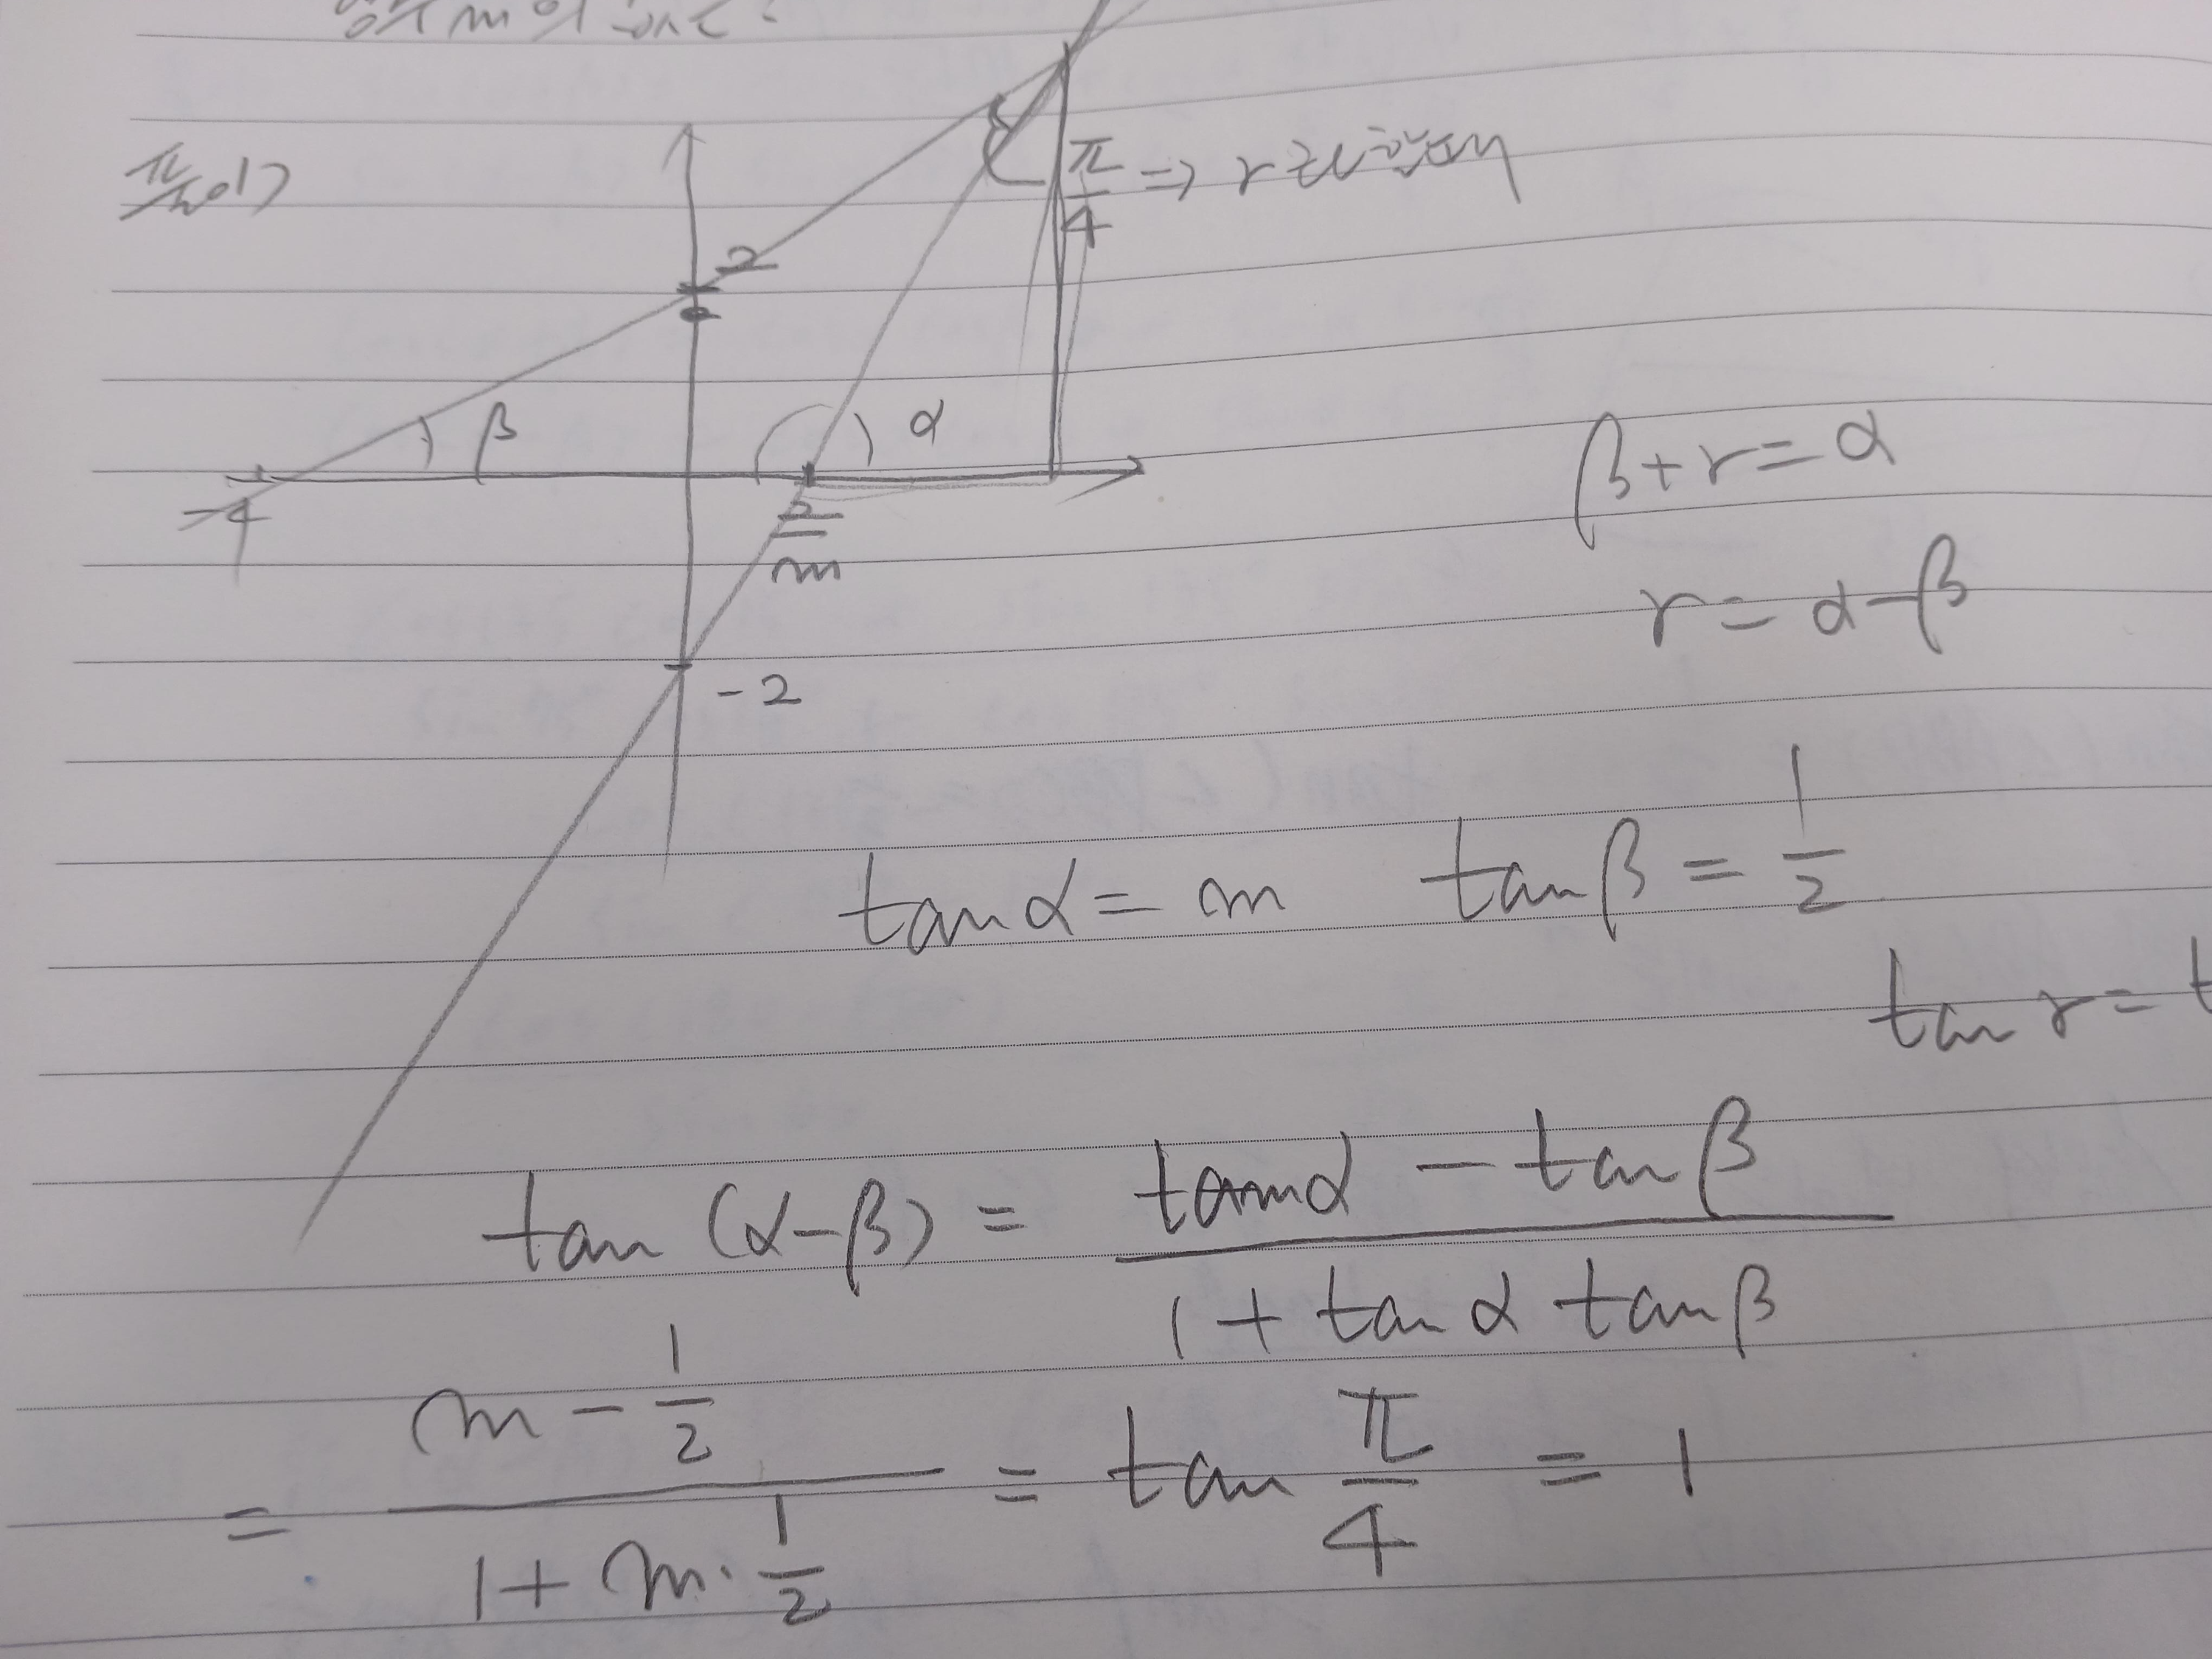 양수 m의 값은?
풀이)
π/4 ⇒ r
2
β
α
-4
2/m
-2
β+r=α
r=α-β
tanα=m tanβ=1/2
tan r=t
tan(α-β)=(tanα-tanβ)/(1+tanα tanβ)
=(m-1/2)/(1+m·1/2)=tan π/4=1